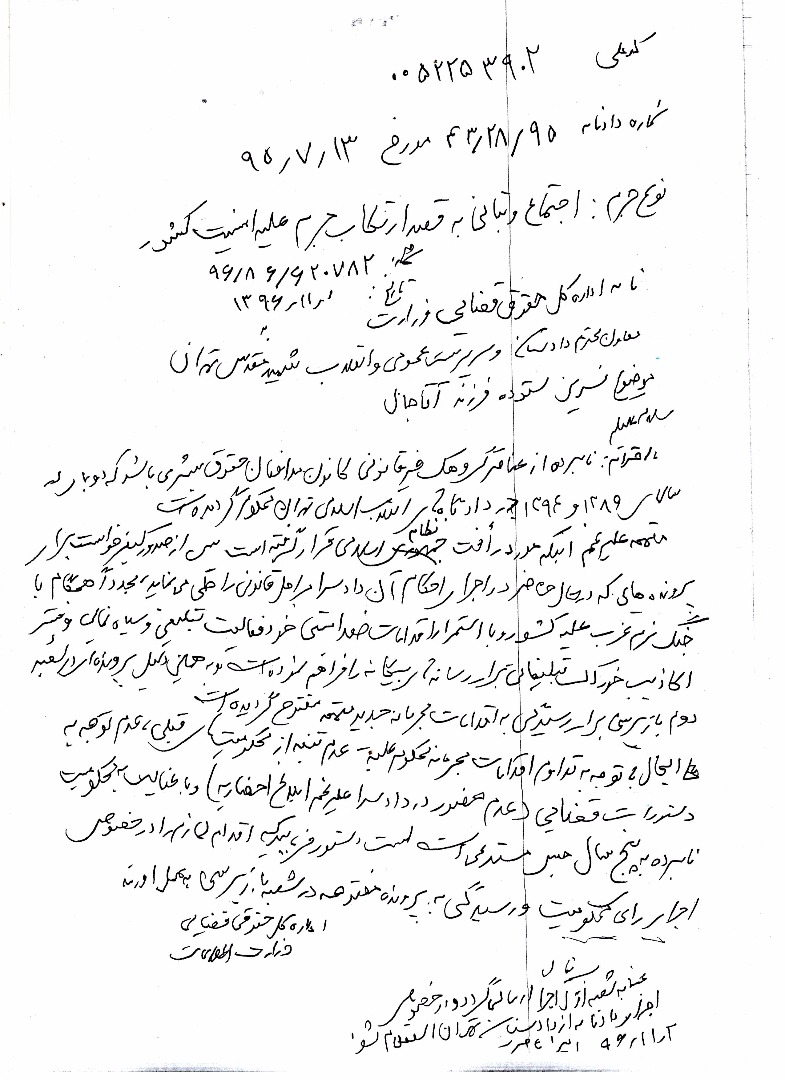 کدملی ۰۰۵۲۲۵۳۹۰۲
شماره دادنامه ۴۳/۲۸/۹۵ مورخ ۹۵/۷/۱۳
نوع جرم: اجتماع و تبانی به قصد ارتکاب جرم علیه امنیت کشور
شماره: ۹۶/۸۶/۶۲۰۷۸۲
تاریخ: ۱۳۹۶/۱۱/۱
نامه اداره کل حقوقی قضایی وزارت
به
معاون محترم دادستان و سرپرست عمومی و انقلاب شهید مقدس تهران
موضوع نسرین ستوده فرزند
سلام علیکم
با احترام: نامبرده از عناصر گروهک غیرقانونی کانون مدافعان حقوق بشر می باشد که دوبار در
سالهای ۱۳۸۹ و ۱۳۹۴ در دادگاه های انقلاب اسلامی تهران محکوم گردیده است
متهمه علی رغم اینکه مورد رأفت نظام جمهوری اسلامی قرار گرفته است پس از صدور کیفرخواست برای
پرونده های که در حال حاضر در اجرای احکام آن دادسرا مراحل قانونی را طی می نماید، مجدداً همگام با
جنگ نرم غرب علیه کشور و با استمرار اقدامات ضد امنیتی خود فعالیت تبلیغی و سیاه نمایی و نشر
اکاذیب خوراک تبلیغاتی برای رسانه های بیگانه را فراهم نموده است به همین دلیل پرونده ای در شعبه
دوم بازپرسی برای رسیدگی به اقدامات مجرمانه جدید متهمه مفتوح گردیده است
علی ایحال با توجه به تداوم اقدامات مجرمانه محکوم علیه - عدم تنبه از محکومیت های قبلی، عدم توجه به
دستورات قضایی (عدم حضور در دادسرا علی رغم ابلاغ احضاریه) و با عنایت به محکومیت
نامبرده به پنج سال حبس مستدعی است دستور فرمایید اقدام لازم را در خصوص
اجرای رای محکومیت و رسیدگی به پرونده مفتوحه در شعبه بازپرسی بعمل آورند
اداره کل حقوقی قضایی
وزارت اطلاعات
به شعبه اول اجرا ارسال گردد و در خصوص
اجرای دادنامه از دادستان تهران استعلام شود